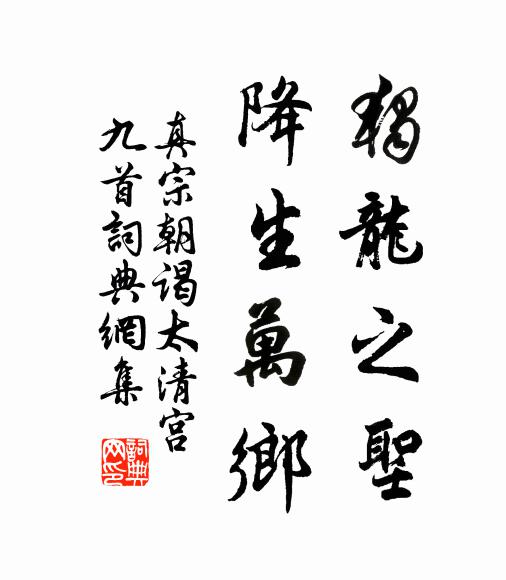 獨龍之聖
降生萬鄉
真宗朝謁太清宮
九首詞典網集
詞典
网印